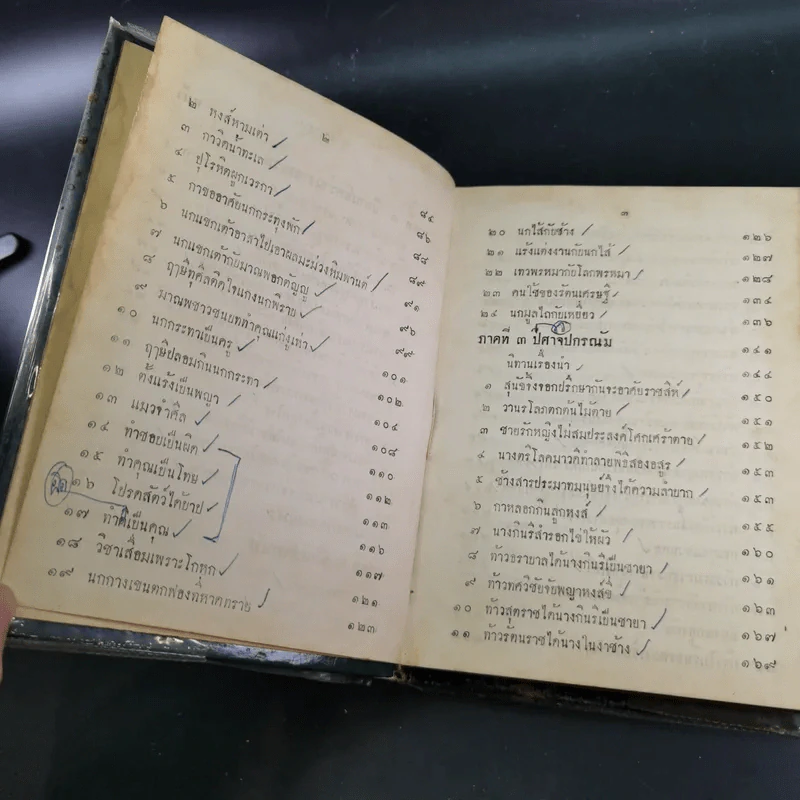 ๒
๒ หงส์หามเต่า
๓ กาวิดน้ำทะเล ๔๕
๔ ปุโรหิตผูกเวรกา ๔๖
๕ กาขออาศัยนกกระทุงพัก ๔๘
๖ นกแขกเต้าอาสาไปเอาผลมะม่วงหิมพานต์ ๔๙
๗ นกแขกเต้ากับมาณพอกตัญญู ๙๑
๘ ฤๅษีทุศีลคิดใจแกงนกพิราบ ๙๖
๙ มาณพชาวชนบททำคุณแก่งูเห่า ๙๙
๑๐ นกกระทาเป็นครู ๑๐๑
๑๑ ฤๅษีปลอมกินนกกระทา ๑๐๒
๑๒ ตั้งแร้งเป็นพญา ๑๐๔
๑๓ แมวจำศีล ๑๐๘
๑๔ ทำชอบเป็นผิด ๑๑๐
๑๕ ทำคุณเป็นโทษ ๑๑๒
๑๖ โปรดสัตว์ได้บาป ๑๑๓
๑๗ ทำดีเป็นคุณ ๑๑๖
๑๘ วิชาเสื่อมเพราะโกหก ๑๑๗
๑๙ นกกางเขนตกฟองที่หาดทราย ๑๒๑
๑๒๓
๓
๒๐ นกไส้กับช้าง ๑๒๖
๒๑ แร้งแต่งงานกับนกไส้ ๑๒๗
๒๒ เทวพรหมากับโลกพรหมา ๑๒๘
๒๓ คนใช้ของรัตนเศรษฐี ๑๓๔
๒๔ นกมูลไถกับเหยี่ยว ๑๓๖
ภาคที่ ๓ ปีศาจปกรณัม ๑๔๑
นิทานเรื่องนำ ๑๔๔
๑ สุนัขจิ้งจอกปรึกษากันจะอาศัยราชสีห์ ๑๕๐
๒ วานรโลภตกต้นไม้ตาย ๑๕๑
๓ ชายรักหญิงไม่สมประสงค์โศกเศร้าตาย ๑๕๒
๔ นางตรีโลคมาวดีทำลายพิธีสองอสูร ๑๕๓
๕ ช้างสารประมาทมนุษย์จึงได้ความลำบาก ๑๕๓
๖ กาหลอกกินลูกหงส์ ๑๕๕
๗ นางกินรีสำรอกไข่ให้ผัว ๑๖๐
๘ ท้าวธรายาลได้นางกินรีเป็นชายา ๑๖๑
๙ ท้าวทศวิชัยจับพญาหงส์ขี่ ๑๖๓
๑๐ ท้าวสุตราชได้นางกินรีเป็นชายา ๑๖๗
๑๑ ท้าวรัตนราชได้นางในงาช้าง ๑๖๙